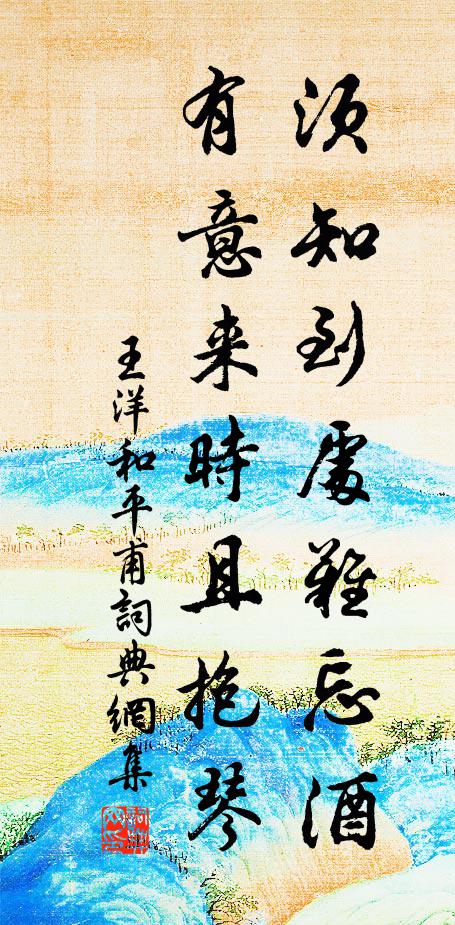 须知到處難忘酒
有意来時且抱琴
王洋和平甫詞典網集